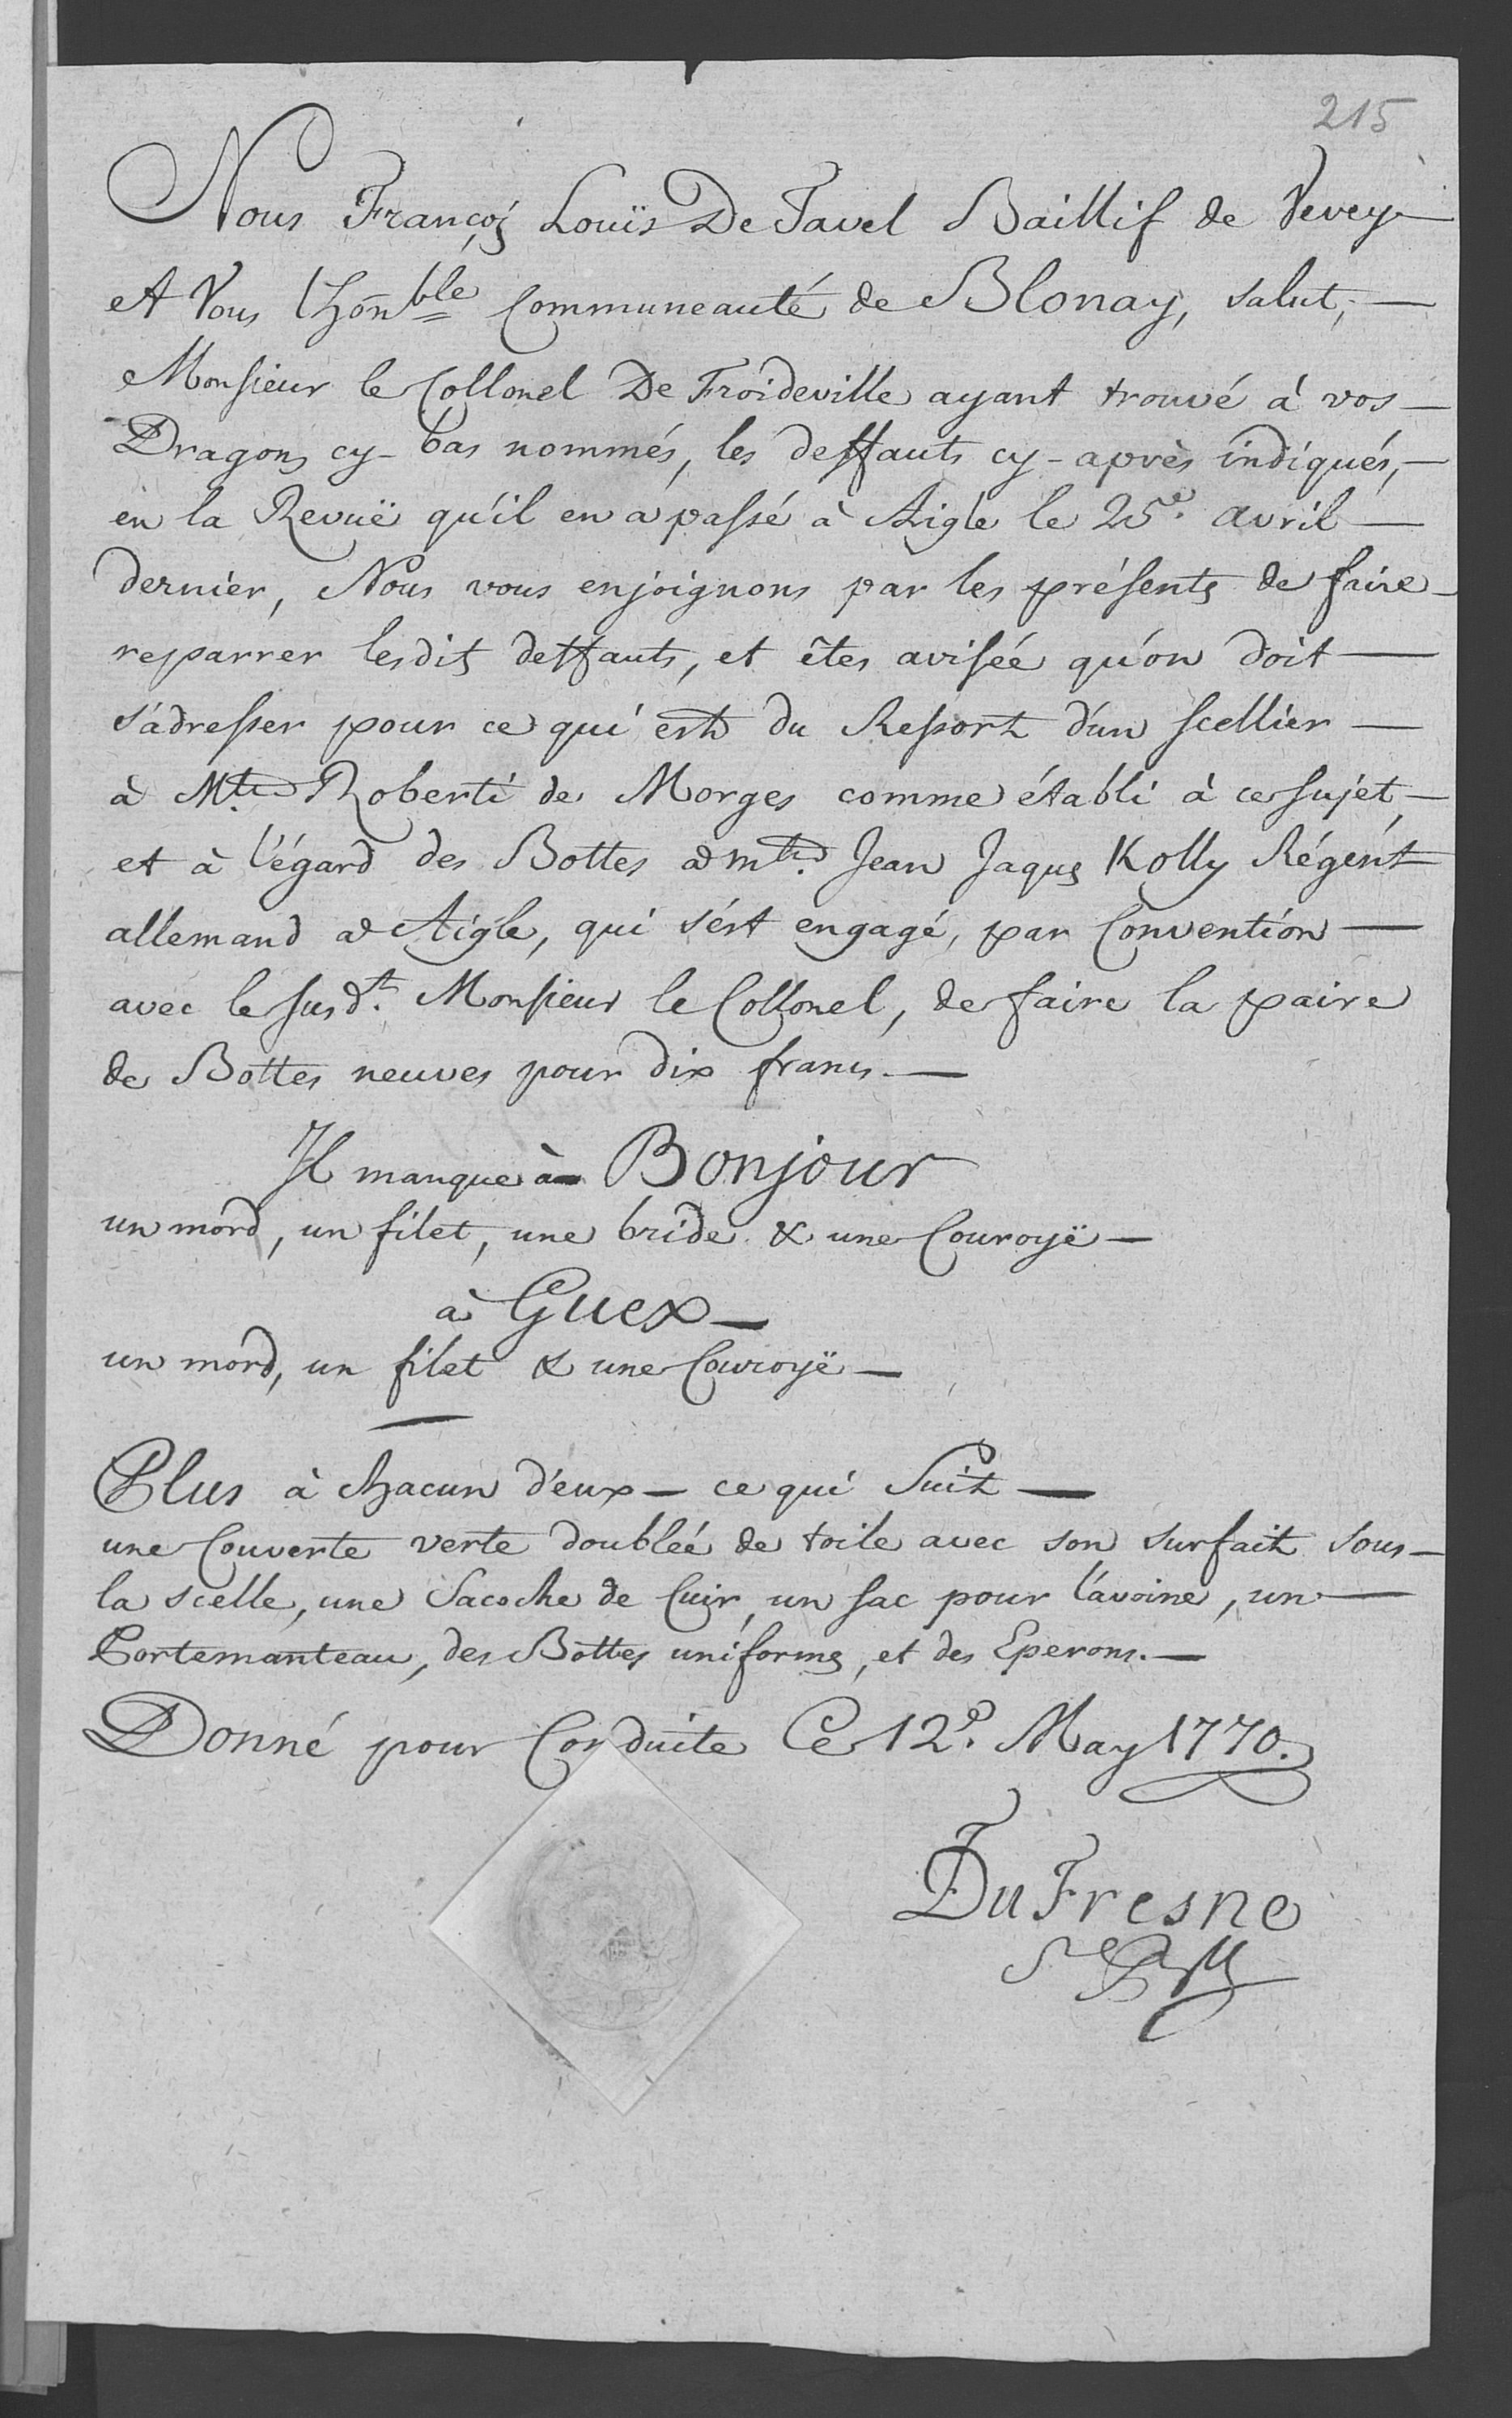 215
Nous François Louïs De Tavel Baillif de Vevey
A Vous lhon̄ble Communeauté de Blonay, salut,
Monsieur le Collonel De Froideville ayant trouvé à vos
Dragons cy-bas nommés, les deffauts cy-après indiqués,
en la Revuë qu'il en a passé à Aigle le 25e. avril
dernier, Nous vous enjoignons par les présentes de faire
reparrer lesdits deffauts, et êtes avisée qu'on doit
s'adresser pour ce qui est du Ressort d'un scellier
à Mtre Roberti de Morges comme établi à ce sujet,
et à l'égard des Bottes a mtre. Jean Jaques Kolly Régent
allemand a Aigle, qui s'est engagé, par Convention
avec le susdt. Monsieur le Collonel, de faire la paire
de Bottes neuves pour dix francs.
Il manque à Bonjour
un mord, un filet, une bride & une Couroyë
à Guex
un mord, un filet & une Couroyë
Plus à chacun d'eux ce qui suit
une Couverte verte doubleé de toile avec son surfait sous
la scelle, une Sacoche de Cuir, un sac pour l'avoine, un
Portemanteau, des Bottes uniformes, et des Eperons.
Donné pour Conduite Ce 12e. May 1770.
Du Fresne